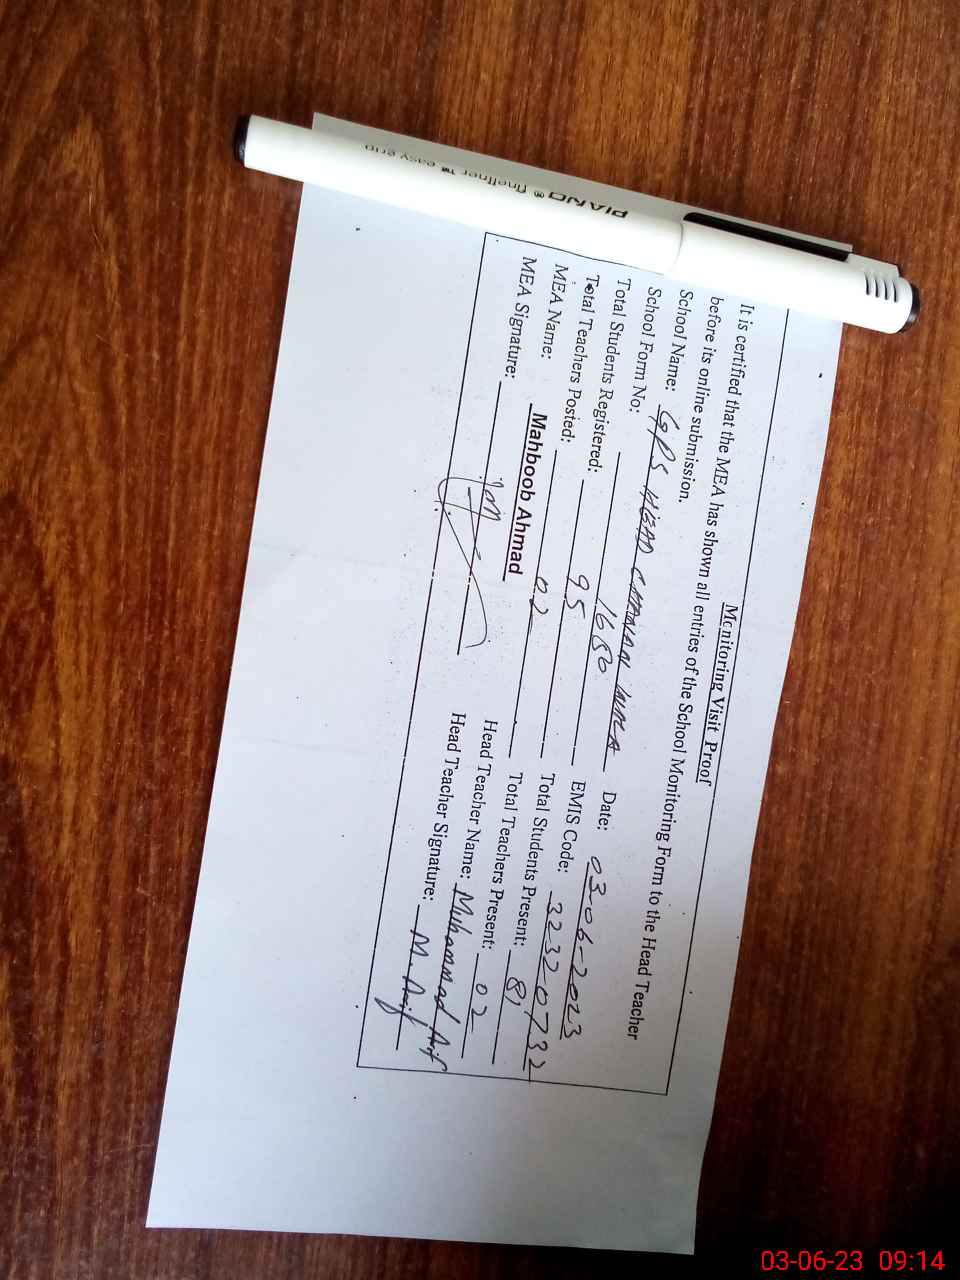 PIANO® fineliner™ easy grip
Monitoring Visit Proof
It is certified that the MEA has shown all entries of the School Monitoring Form to the Head Teacher
before its online submission.
School Name: GPS HEAD CHANAN WALA Date: 03-06-2023
School Form No: 1680 EMIS Code: 32320732
Total Students Registered: 95 Total Students Present: 81
Total Teachers Posted: 02 Total Teachers Present: 02
MEA Name: Mahboob Ahmad Head Teacher Name: Muhammad Arif
MEA Signature: Head Teacher Signature: M. Arif
03-06-23 09:14